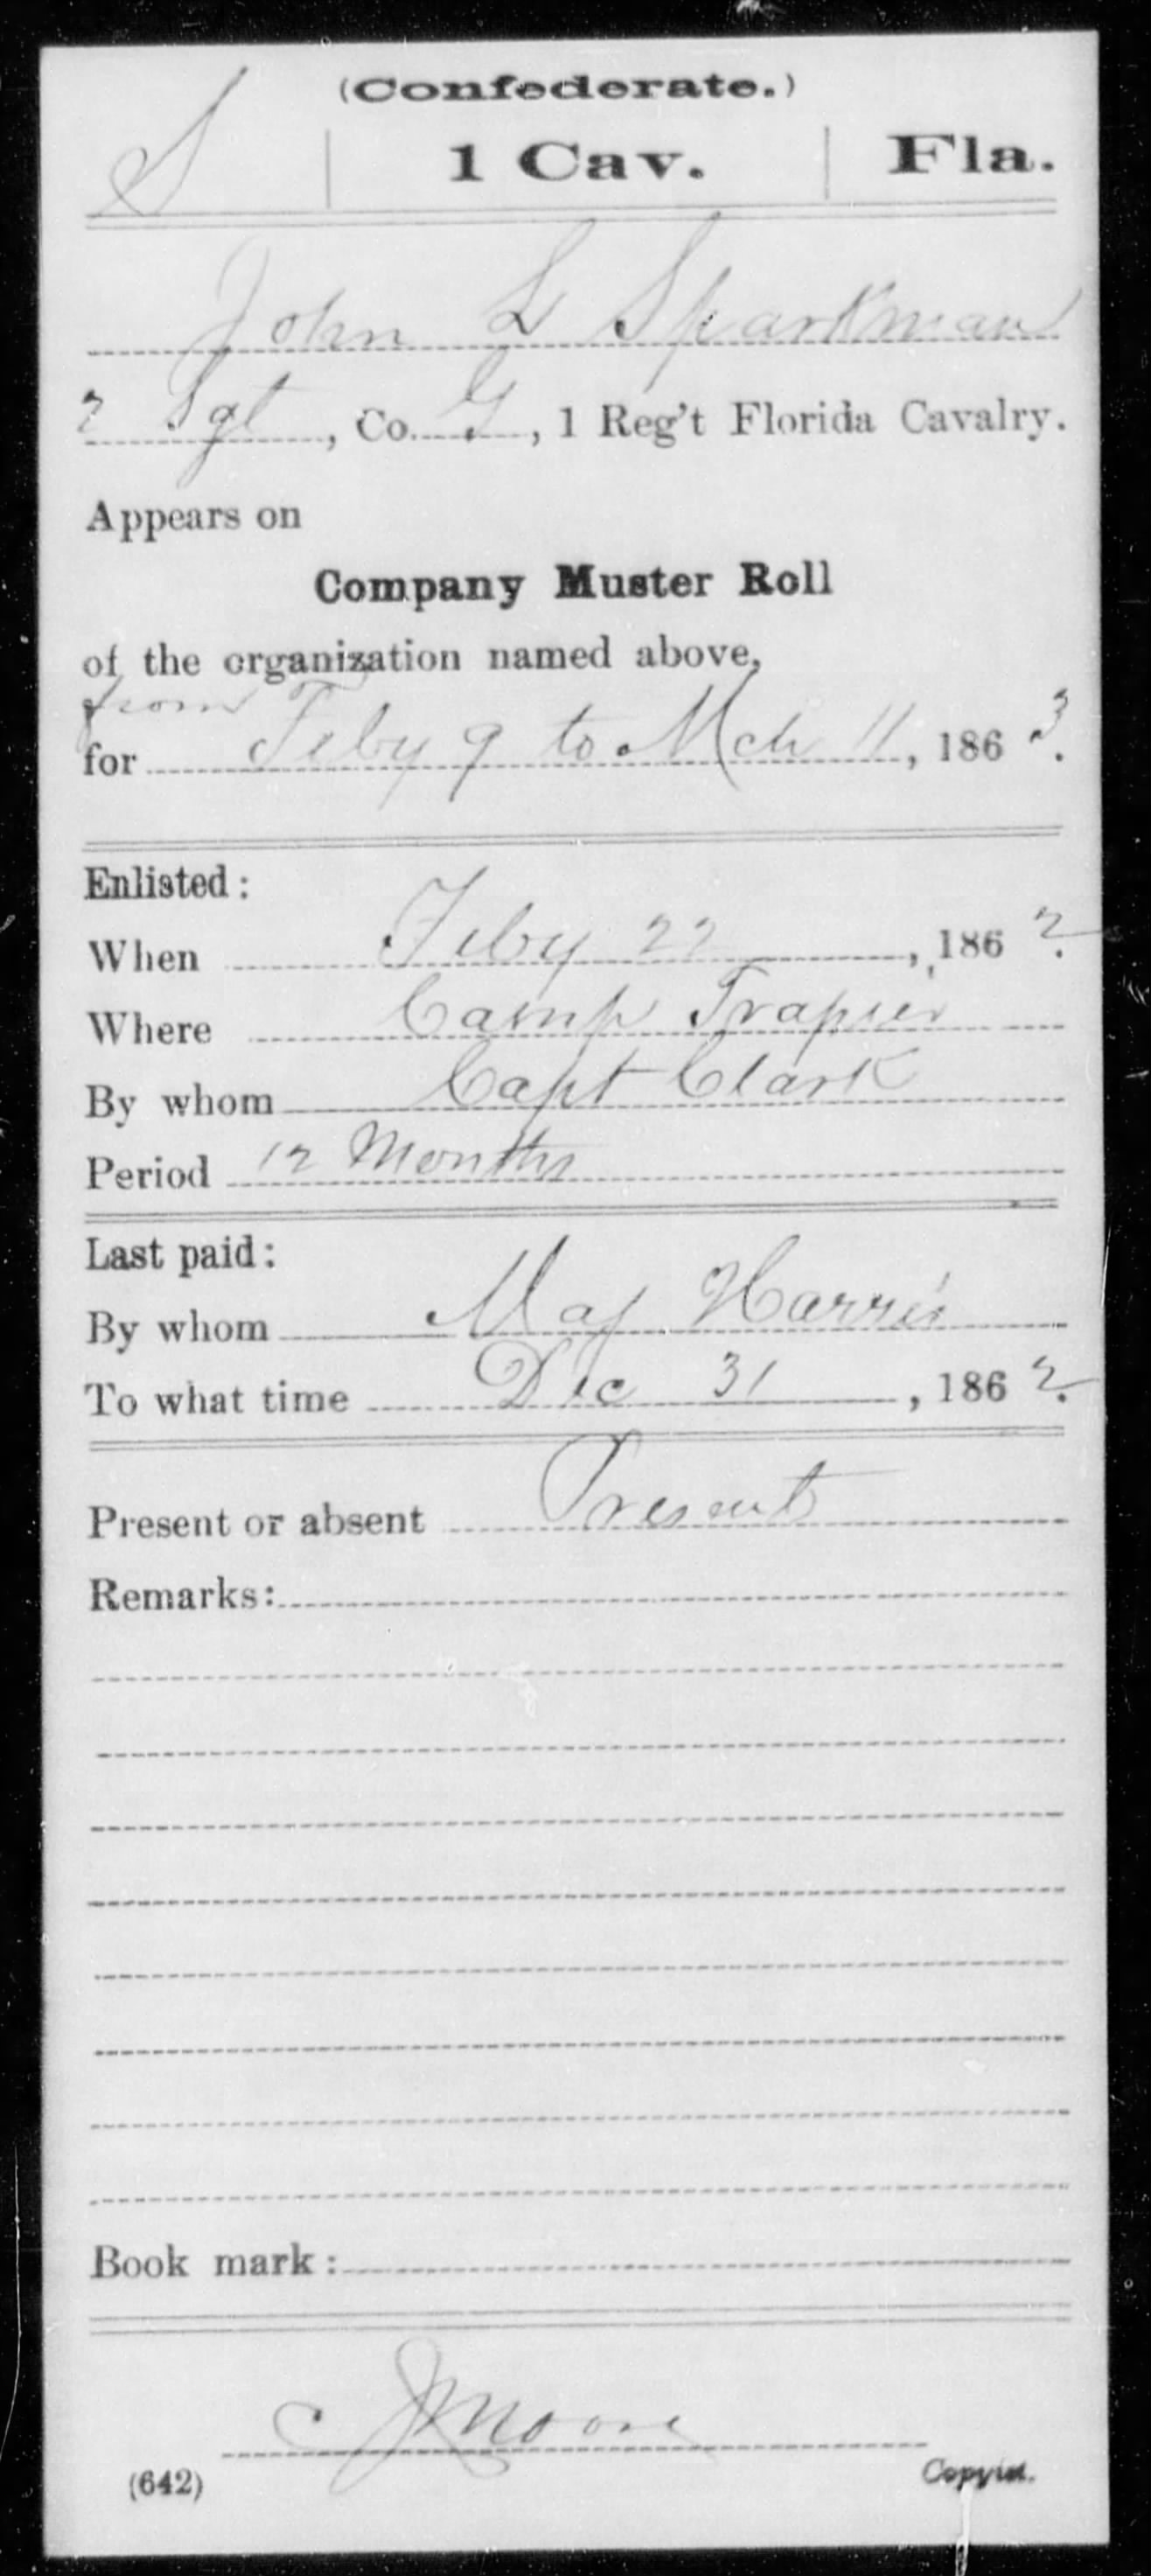 (Confederate.)
S | 1 Cav. | Fla.
John L Sparkman
2 Sgt, Co. G, 1 Reg't Florida Cavalry.
Appears on
Company Muster Roll
of the organization named above,
from
for Feby 9 to Mch 11, 1863.
Enlisted:
When Feby 22, 1862.
Where Camp Trapier
By whom Capt Clark
Period 12 Months
Last paid:
By whom Maj Harris
To what time Dec 31, 1862.
Present or absent Present
Remarks:
Book mark:
Moore
(642) Copyist.